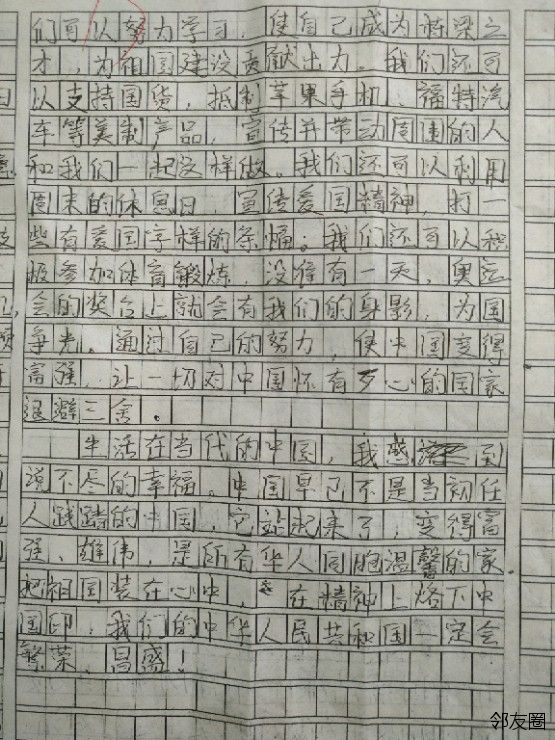 们可以努力学习,使自己成为栋梁之
才,为祖国建设贡献出力。我们还可
以支持国货,抵制苹果手机、福特汽
车等美制产品,宣传并带动周围的人
和我们一起这样做。我们还可以利用
周末的休息日 宣传爱国精神,打一
些有爱国字样的条幅。我们还可以积
极参加体育锻炼 没准有一天,奥运
会的奖台上就会有我们的身影,为国
争光。通过自己的努力,使中国变得
富强,让一切对中国怀有歹心的国家
退避三舍。
生活在当代的中国,我感到
说不尽的幸福。中国早已不是当初任
人践踏的中国,它站起来了,变得富
强、雄伟,是所有华人同胞温馨的家
把祖国装在心中, 在精神上烙下中
国印:我们的中华人民共和国一定会
繁荣、昌盛!
邻友圈